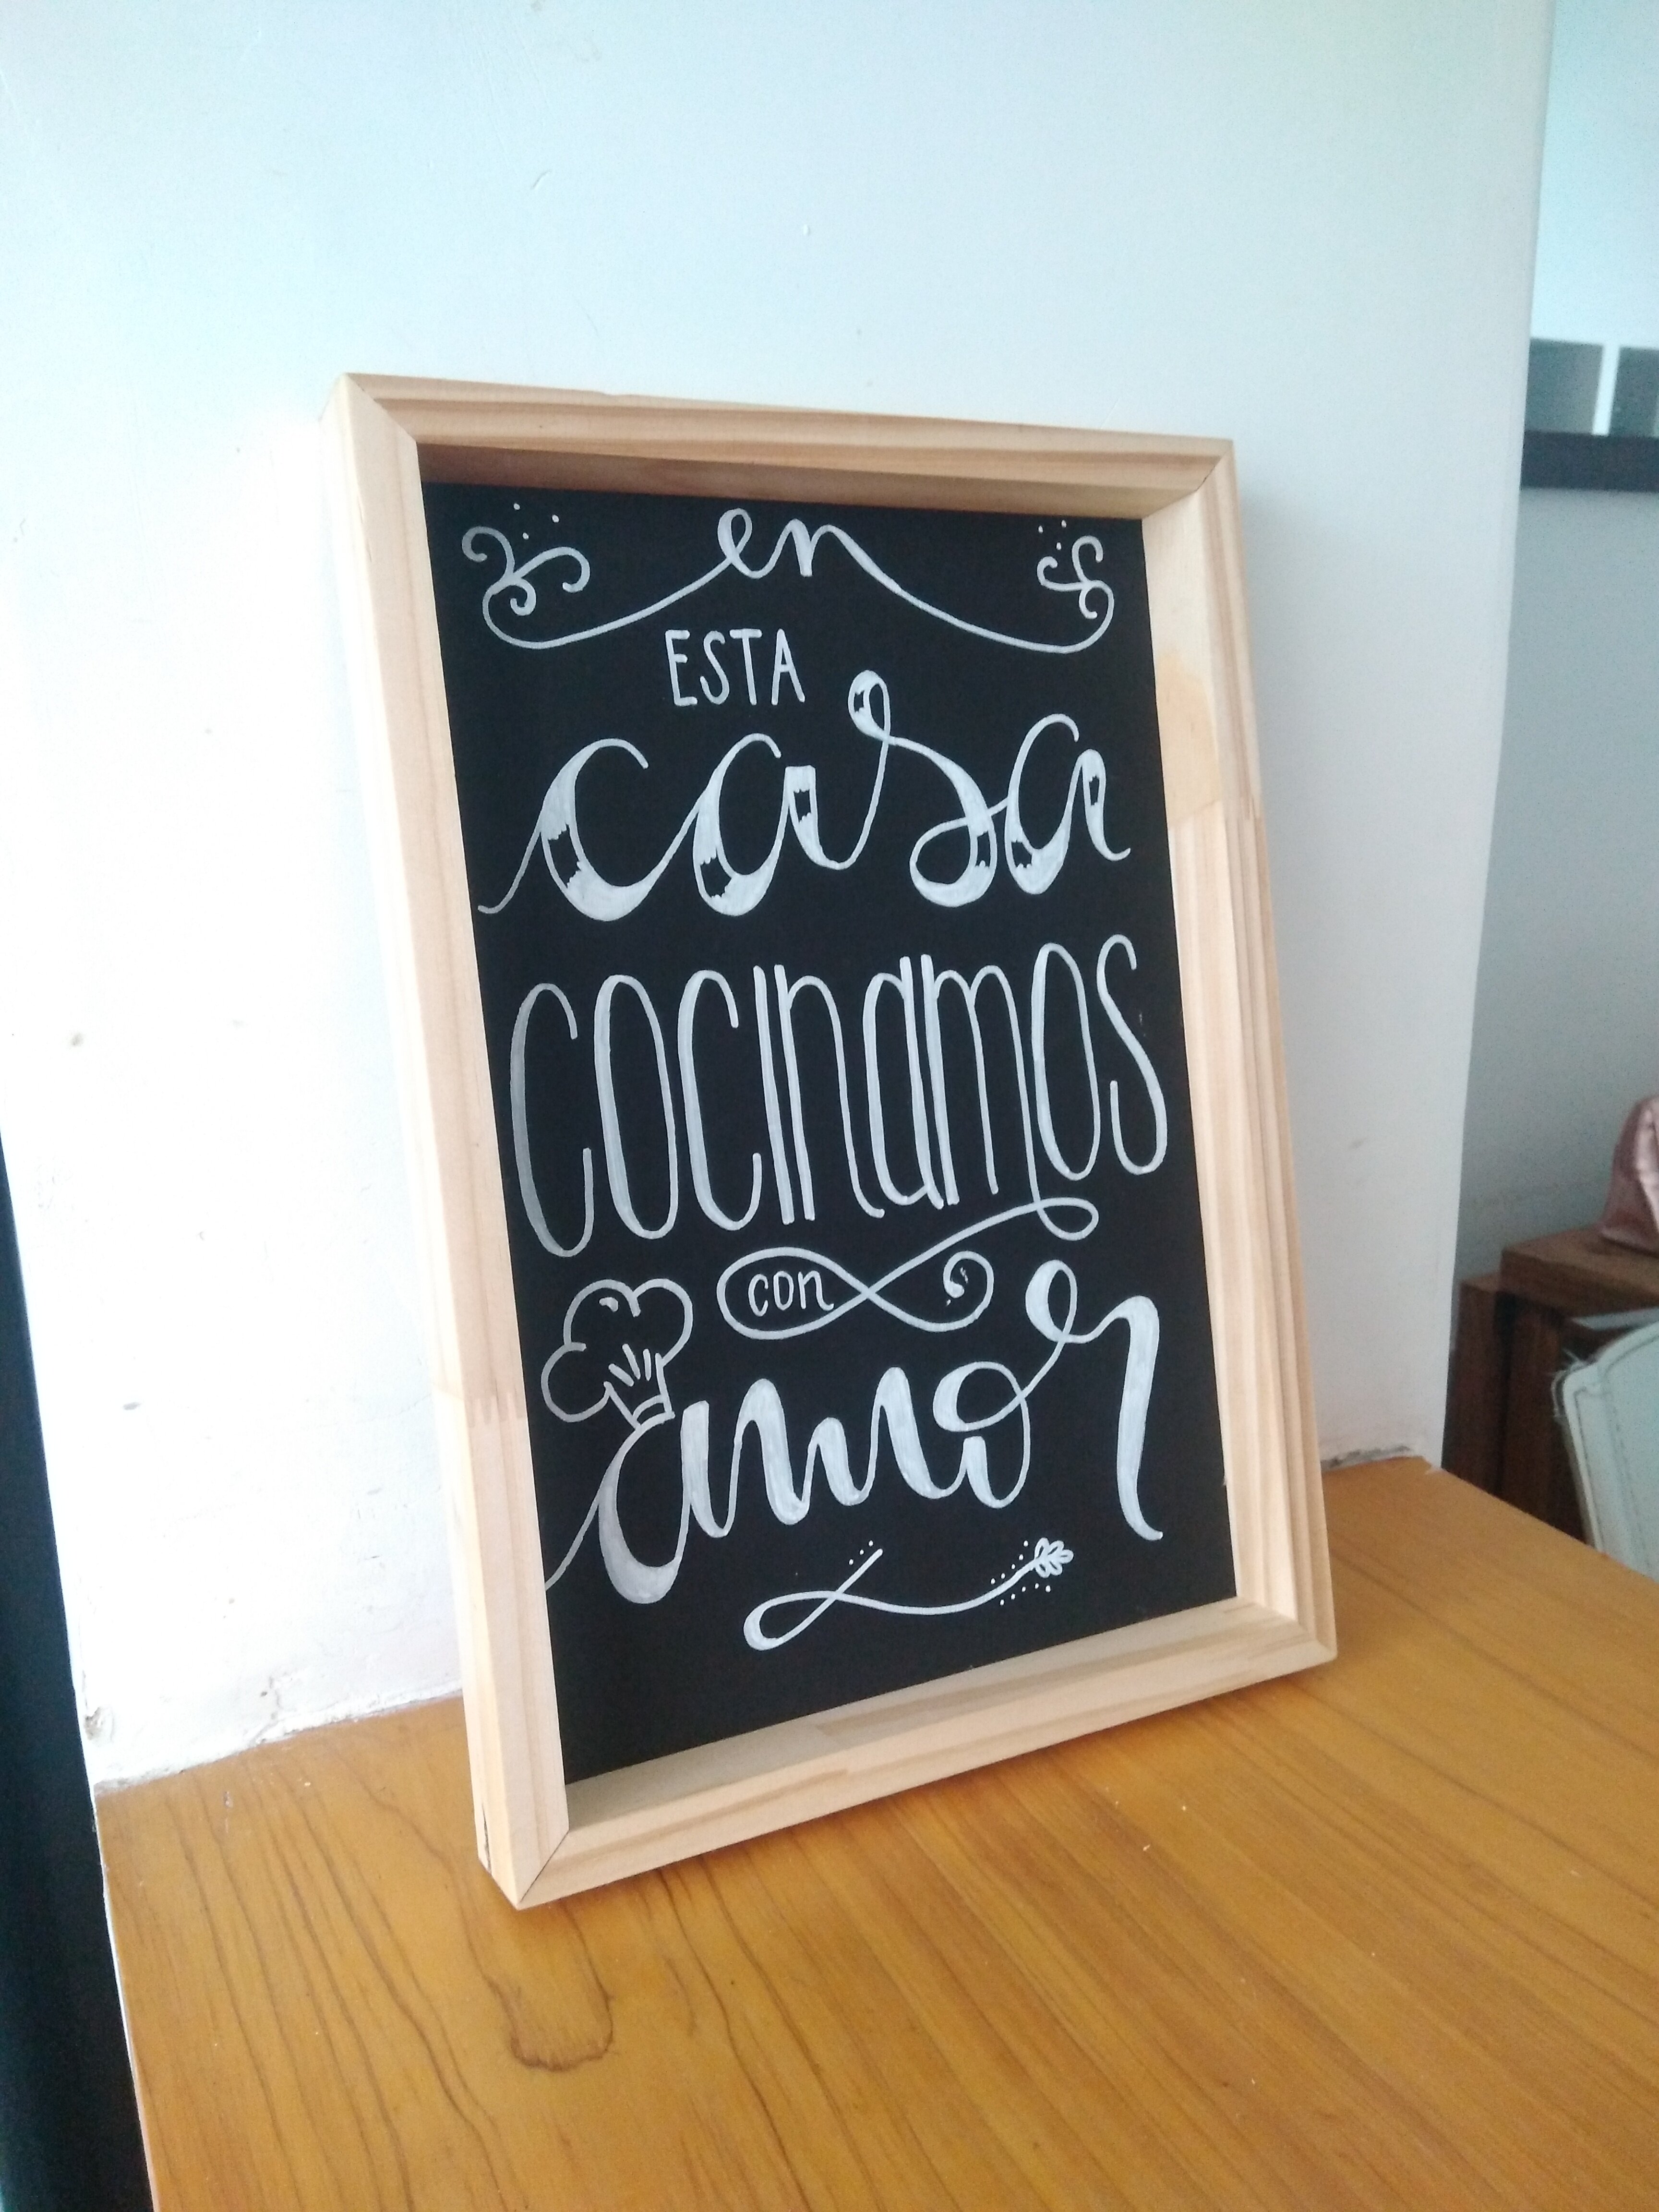 en
ESTA
casa
cocinamos
con
amor